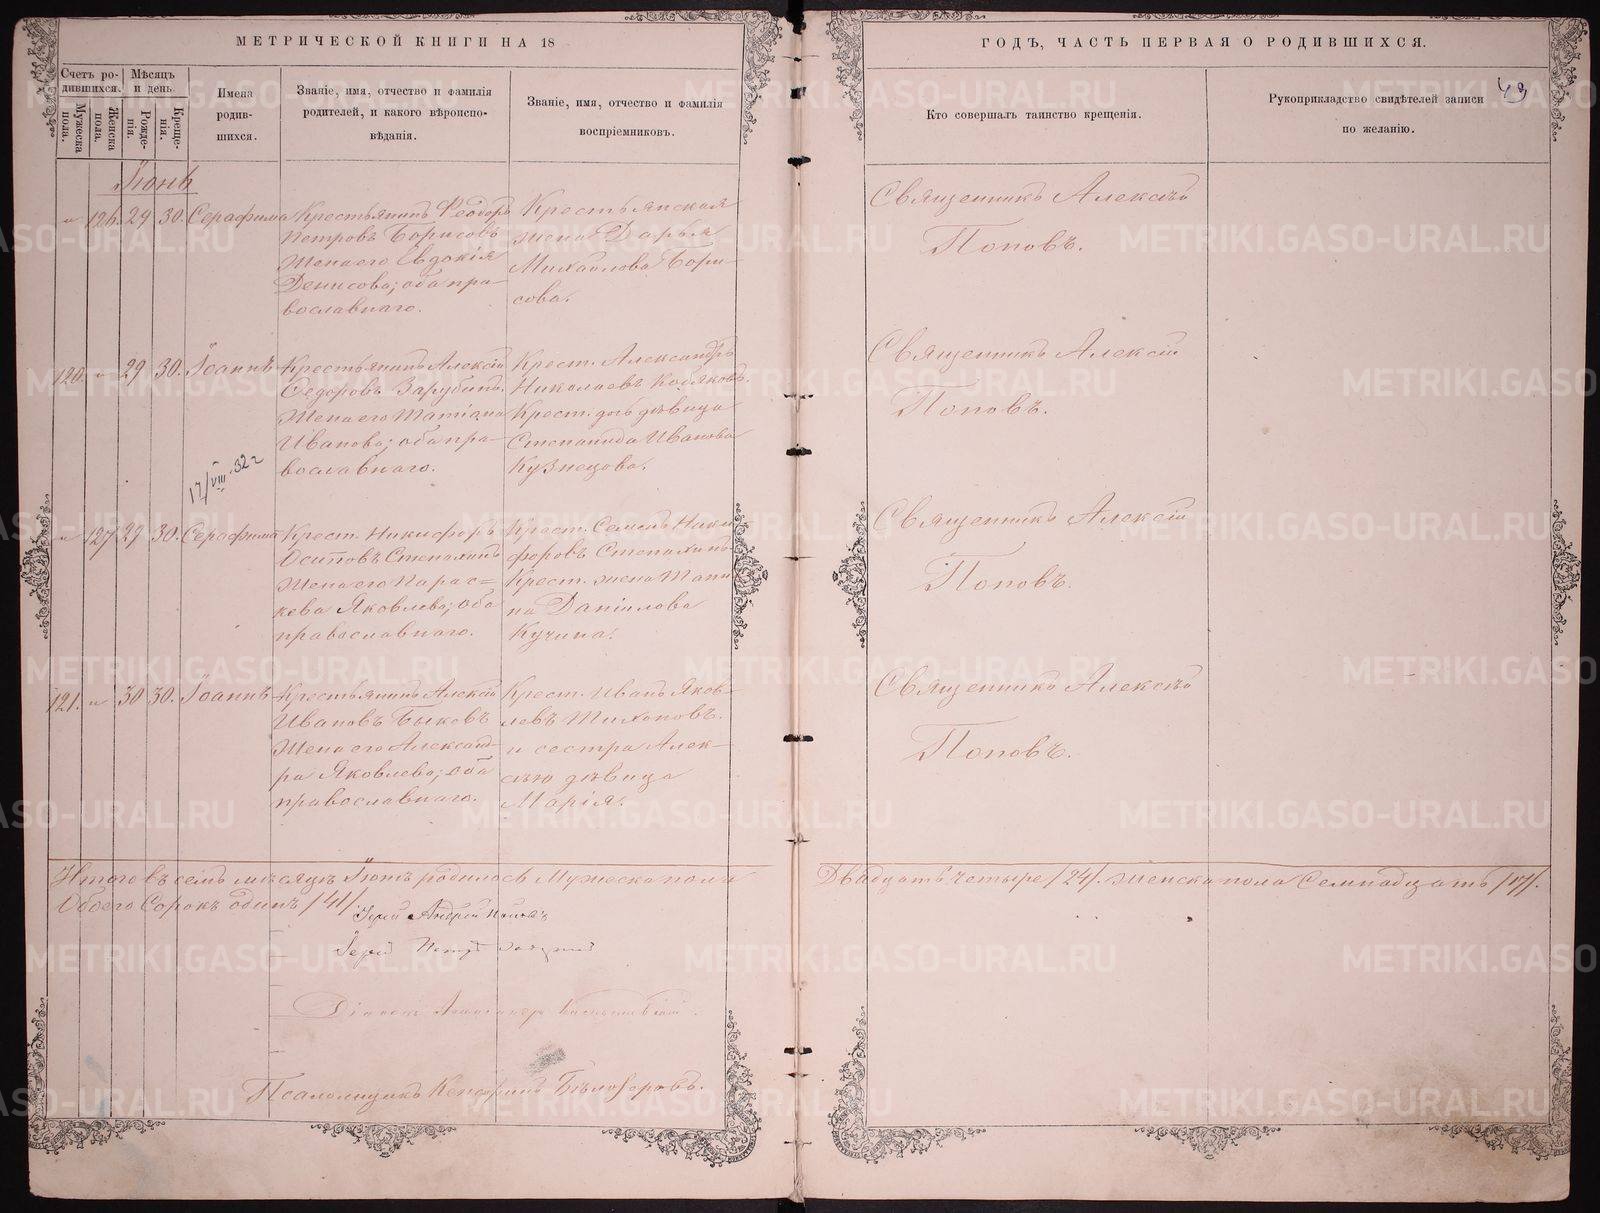 МЕТРИЧЕСКОЙ КНИГИ НА 18
ГОДЪ, ЧАСТЬ ПЕРВАЯ О РОДИВШИХСЯ.
Счетъ ро-
дившихся.
Мужеска
пола.
Женска
пола.
Мѣсяцъ
и день
Рожде-
нія.
Креще-
нія.
Имена
родив-
шихся.
Званіе, имя, отчество и фамилія
родителей, и какого вѣроиспо-
вѣданія.
Званіе, имя, отчество и фамилія
воспріемниковъ.
Кто совершалъ таинство крещенія.
Рукоприкладство свидѣтелей записи
по желанію.
43
Іюнь
„ 126. 29 30. Серафима
Крестьянинъ Феодоръ
Петровъ Борисовъ
Жена его Евдокія
Денисова; оба пра-
вославнаго.
Крестьянская
жена Дарья
Михайлова Бори-
сова.
Священникъ Алексѣй
Поповъ.
120. „ 29 30. Іоаннъ
Крестьянинъ Алексій
Седоровъ Зарубинъ
Жена его Татіана
Иванова; оба пра-
вославнаго.
Крест. Александръ
Николаевъ
Крест. дочь дѣвица
Степанида Иванова
Кузнецова.
Священникъ Алексій
Поповъ.
17/VIII-32 г
„ 127 29 30. Серафима
Крест. Никифоръ
Осиповъ
Жена его Парас=
кева Яковлева; оба
православнаго.
Крест. Семенъ Ники
форовъ
Крест. жена Татiа
на Даніилова
Кучина.
Священникъ Алексій
Поповъ.
121. „ 30 30. Іоаннъ
Крестьянинъ Алексій
Ивановъ Быковъ
Жена его Александ-
ра Яковлева; оба
православнаго.
Крест. Иванъ Яков-
левъ Тихоновъ.
и сестра Алек-
сѣю дѣвица
Марія.
Священникъ Алексѣй
Поповъ.
Итого въ семъ мѣсяцѣ Іюнѣ родилось Мужеска пола
Двадцать четыре /24/. Женска пола Семнадцать /17/.
Обоего Сорокъ одинъ /41/
Іерей Андрей Поповъ
Іерей Петръ
Діаконъ Александръ
Псаломщикъ Бѣлозеровъ.
METRIKI.GASO-URAL.RU